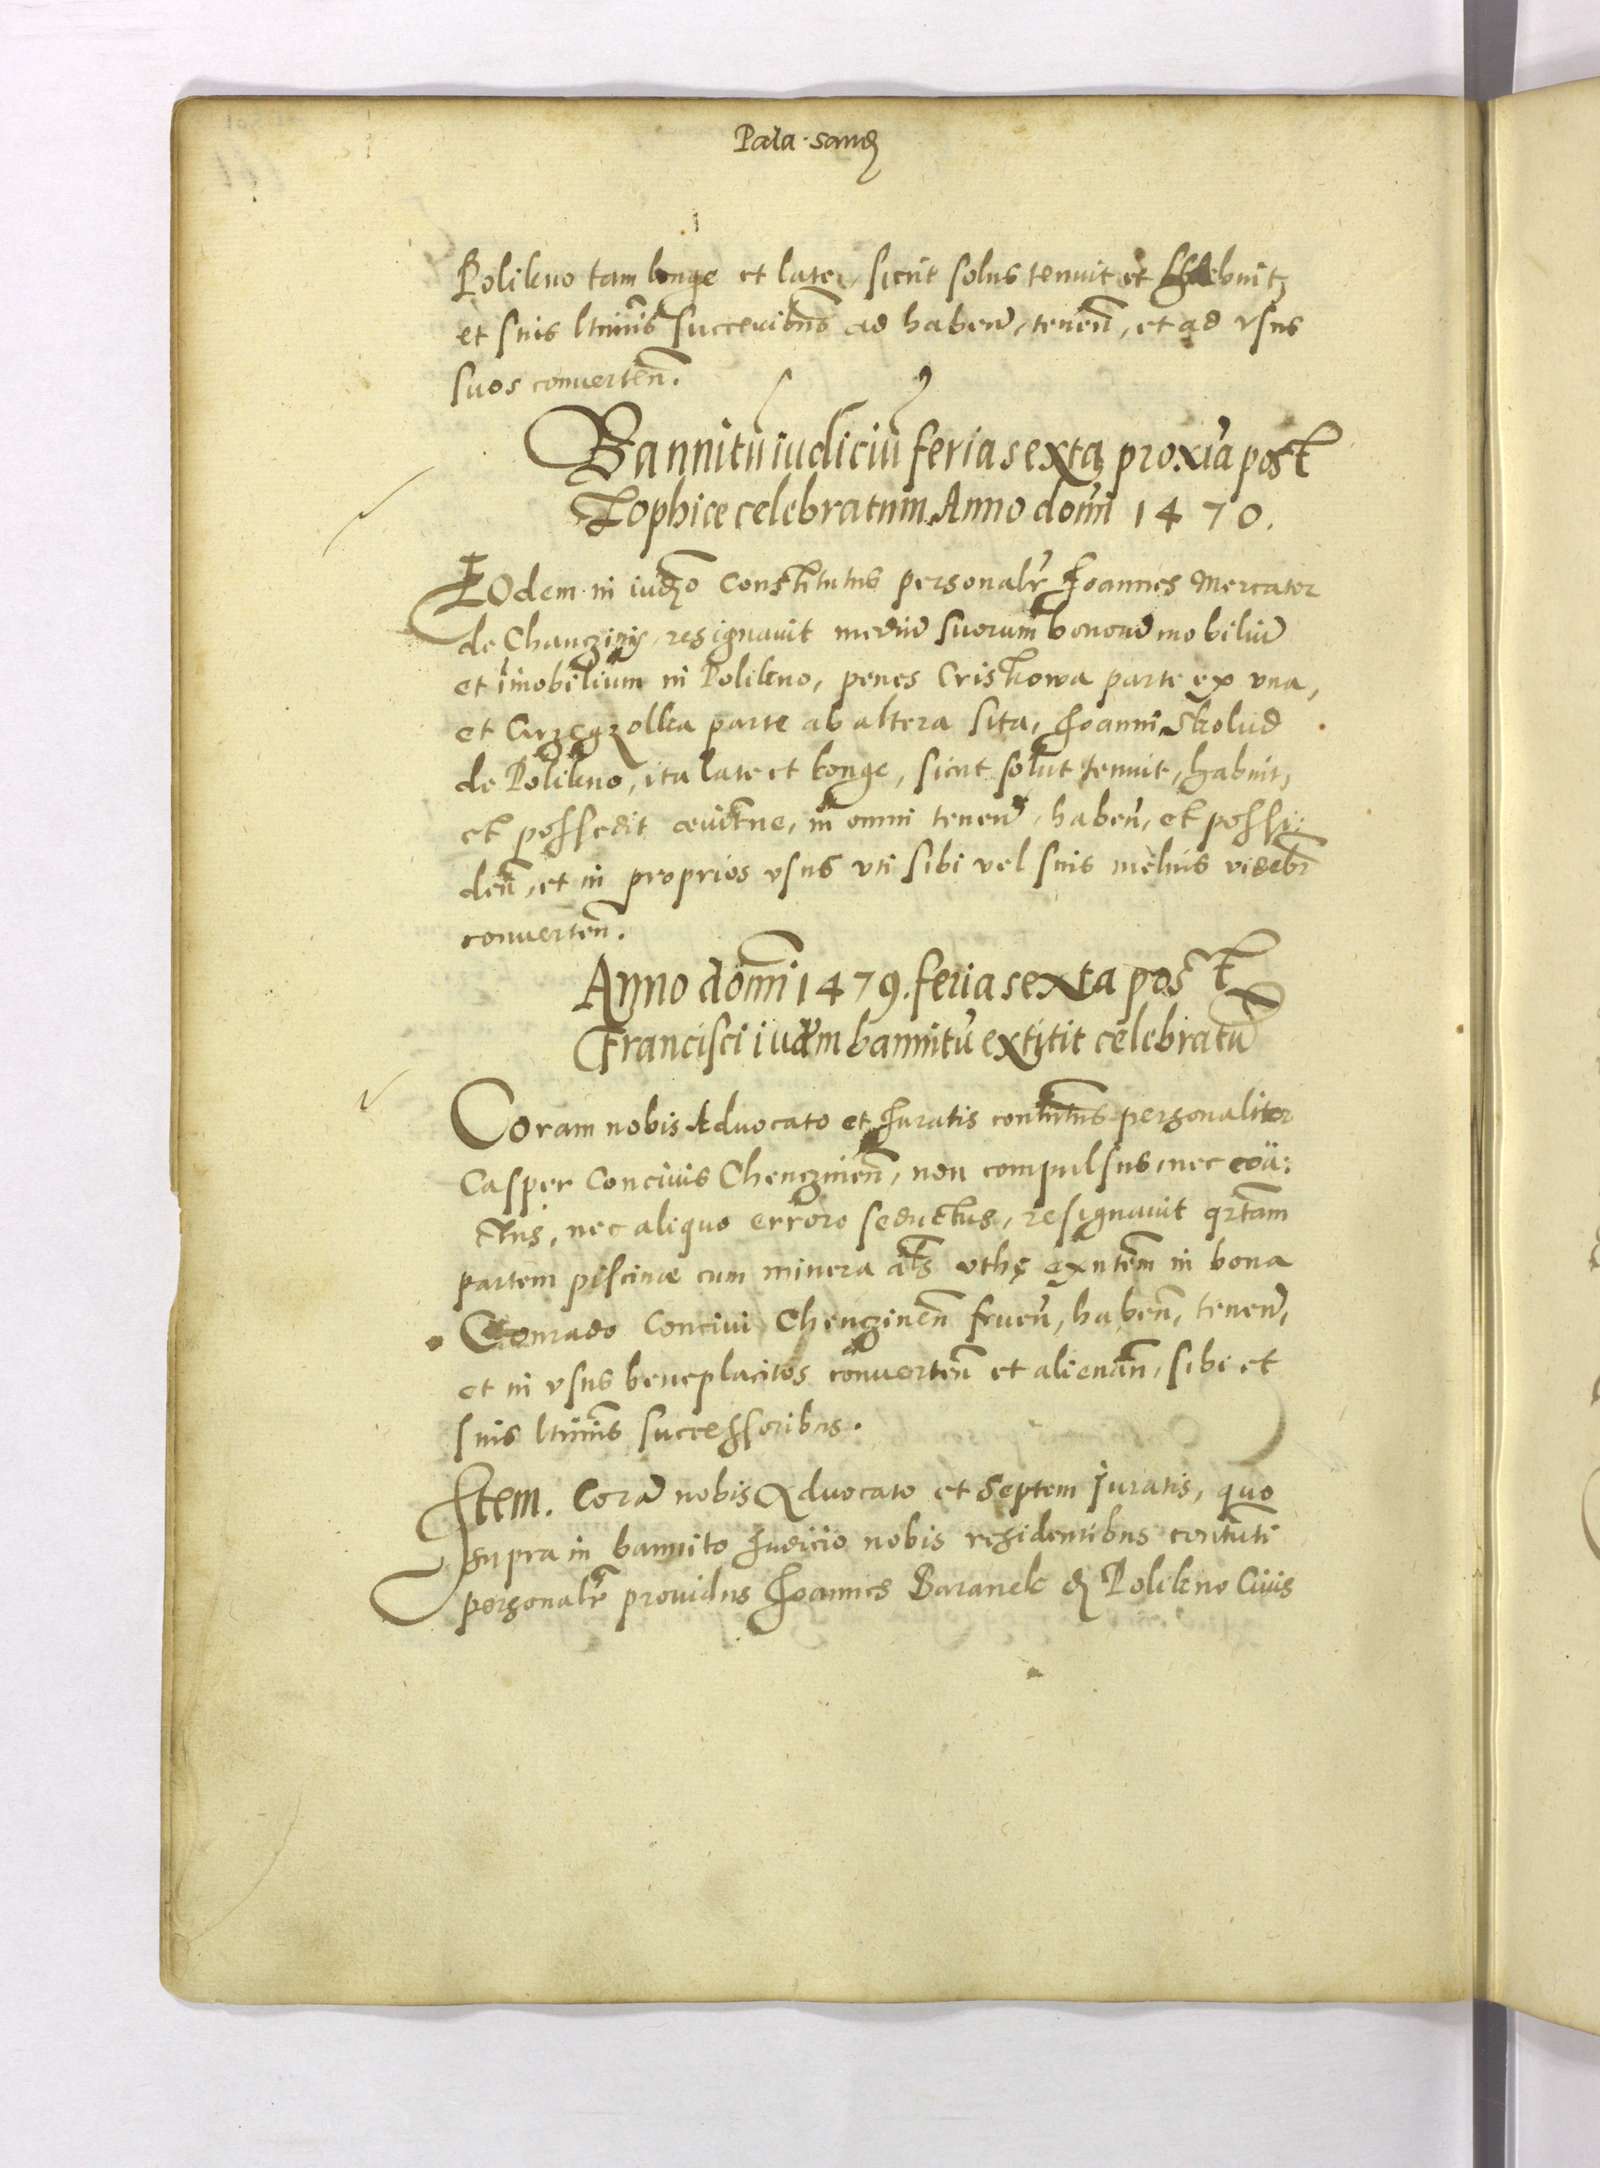 Pala. sand
Polikno tam longe et late, sicut solus tenuit et habuit,
et suis ltimis succeribus ad habend, tenen, et ad vsus
suos converten.
Bannitu iudiciu feria sexta proxia post
Zophiæ celebratum Anno domi 1470.
EOdem in iudo Constitutus personalr Joannes Mercator
de Chanczini, resignauit mediu suorum bonoru mobiliu
et imobilium in Polikno, penes Criskowa parte ex vna,
et parte ab altera sita, Joanni Skolud
de Polikno, ita late et longe, sicut solut tenuit, habuit,
et possedit, in omni tenen, haben, et possi:
den, et in proprios vsus vti sibi vel suis melius videbr
converten.
Anno domi 1479. feria sexta post
Francisci iudm bannitu extitit celebratu
Coram nobis Aduocato et Juratis contutus personaliter
Casper Concivis Chenczinen, non compulsus, nec coa:
ctus, nec aliquo errore seductus, resignauit qrtam
partem piscinæ cum minera als vthę exntem in bona
Conrado Concivi Chenczinen fruen, haben, tenen,
et in vsus beneplacitos converten et alienan, sibi et
suis ltimis successoribus.
Item. Cora nobis Aduocato et Septem Juratis, quo
supra in bannito Judicio nobis residentibus contuti
personalr prouidus Joannes Baranek d Polikno Civis